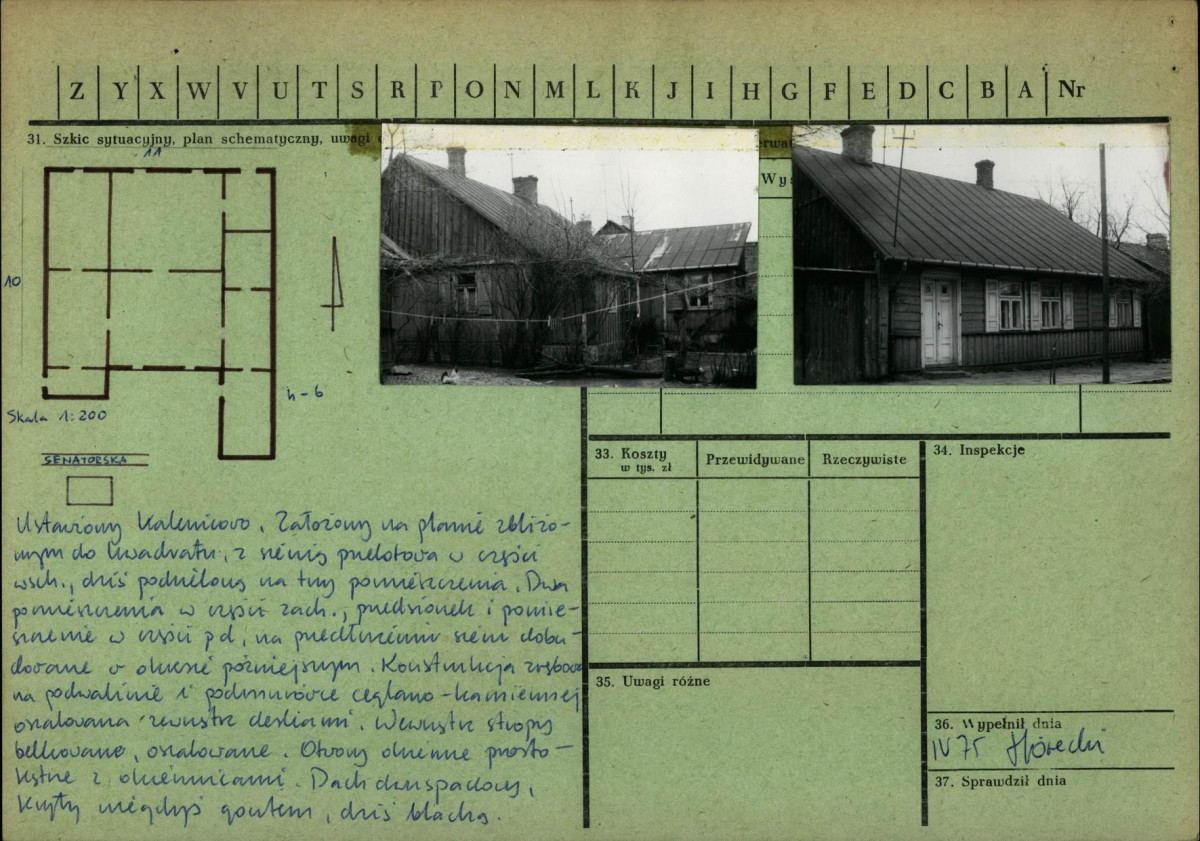 Z Y X W V U T S R P O N M L K J I H G F E D C B A Nr
31. Szkic sytuacyjny, plan schematyczny, uwagi
11
10
h-6
Skala 1:200
SENATORSKA
Ustawiony kalenicowo. Założony na planie zbliżo-
nym do kwadratu, z sienią przelotową w części
wsch., dziś podzieloną na trzy pomieszczenia. Dwa
pomieszczenia w części zach., przedsionek i pomie-
szczenie w części pd, na przedłużeniu sieni dobu-
dowane w okresie późniejszym. Konstrukcja zrębowa
na podwalinie i podmurówce ceglano-kamiennej
oszalowana zewnątrz deskami. Wewnątrz stropy
belkowane, oszalowane. Otwory okienne prosto-
kątne z okiennicami. Dach dwuspadowy,
kryty niegdyś gontem, dziś blachą.
Wys
33. Koszty
w tys. zł
Przewidywane
Rzeczywiste
34. Inspekcje
35. Uwagi różne
36. Wypełnił dnia
IV 75 Górecki
37. Sprawdził dnia